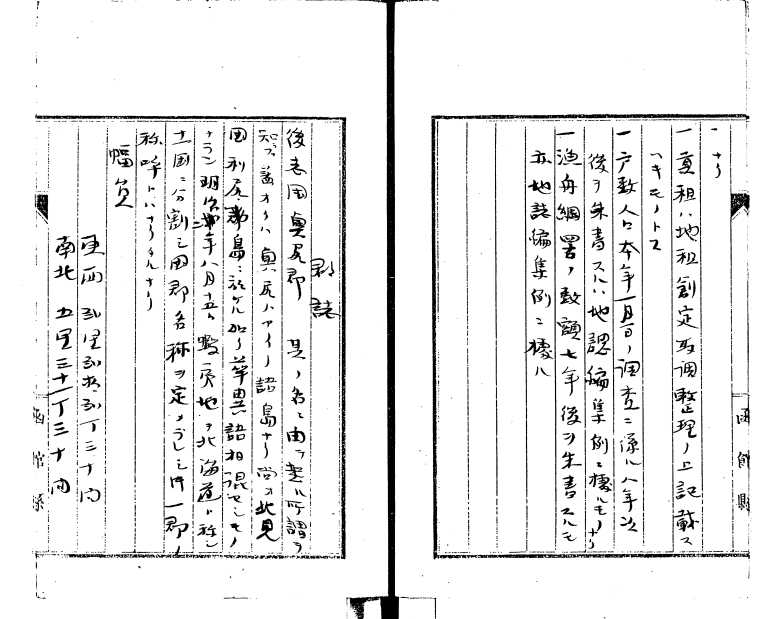 ナリ
一貢租ハ地租創定取調整理ノ上記載ス
ヘキモノトス
一戸数人口本年一月一日ノ調査ニ係ル八年次
後ヲ朱書スルハ地誌編集例ニ據ルモノナリ
一漁舟網罟ノ数額七年後ヲ朱書スルモ
亦地誌編集例ニ據ル
函館縣
郡誌
後志国奥尻郡 其ノ名ニ由テ起ル所謂ヲ
知ラズ蓋オクハ奥尻ハアイノ語島ナリ尚ヲ北見
国利尻郡島ニ於ケル如ク草異語相混セシモノ
ナラン明治二年八月十五日蝦夷地ヲ北海道ト称シ
十一国ニ分割シ国郡名称ヲ定メラレシ時一郡ノ
称呼トハナリタルナリ
幅員
東西 弐里弐拾弐丁三十間
南北 五里三十一丁三十間
函館縣